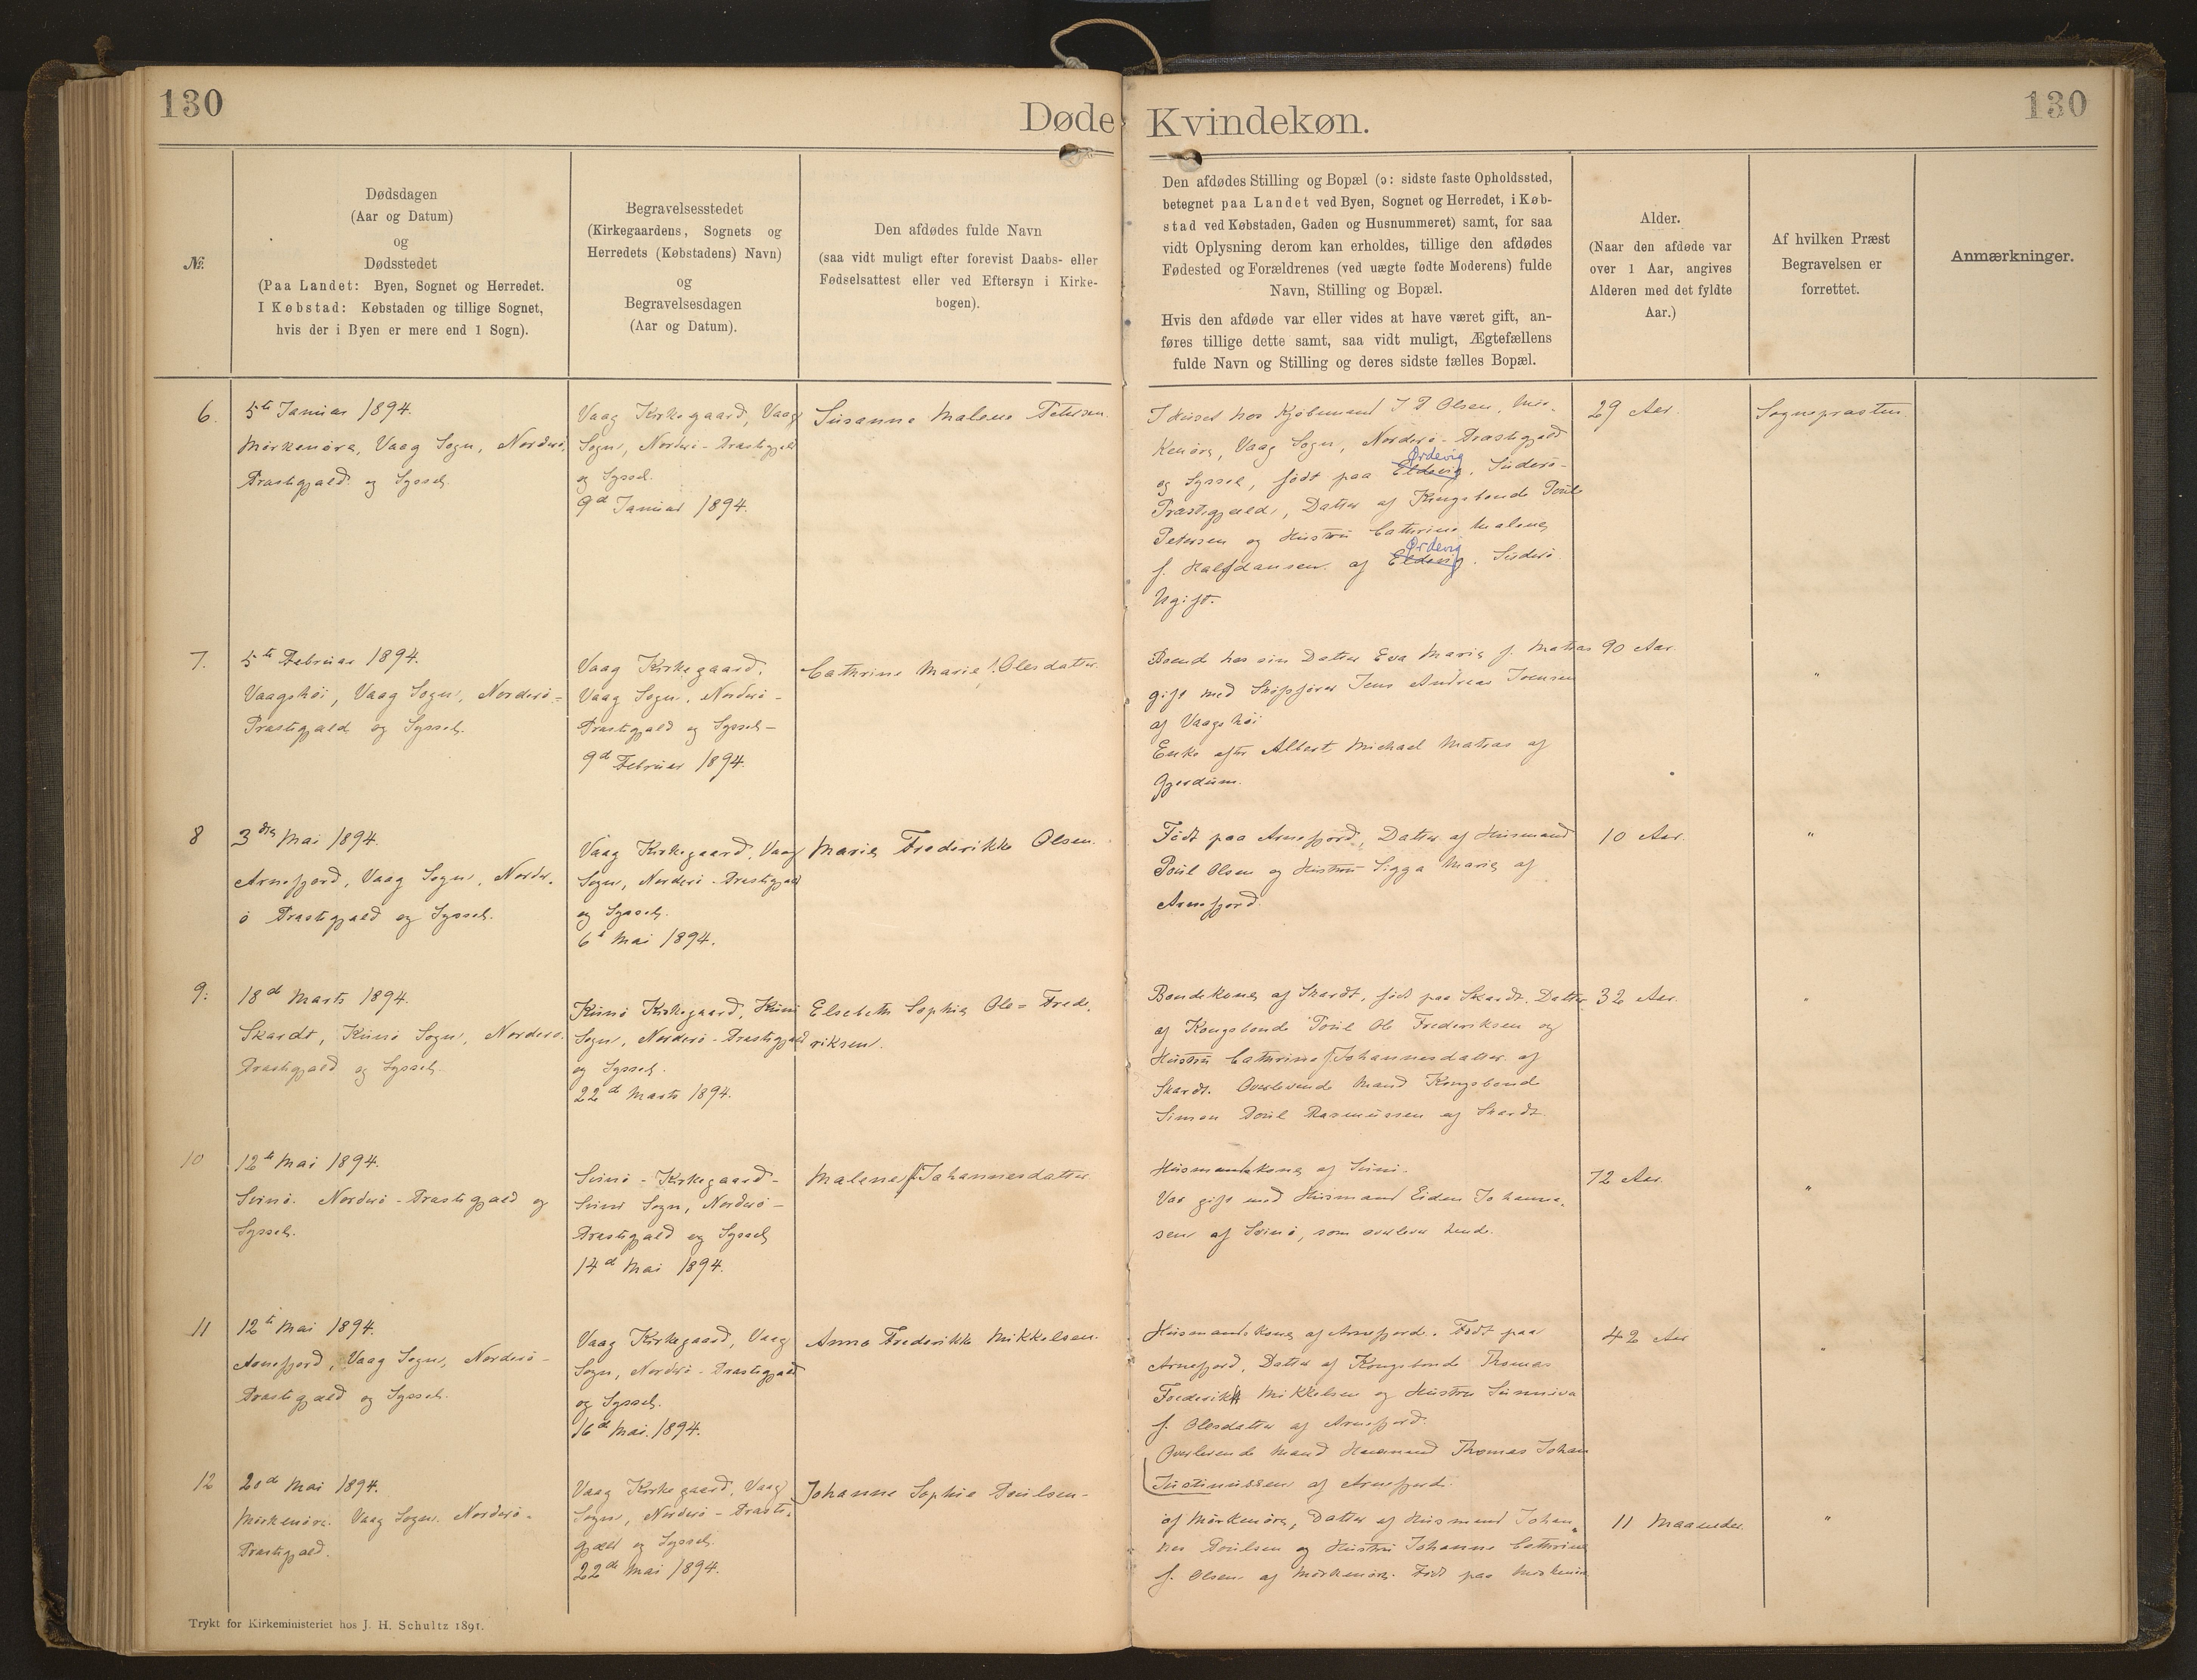 130
Døde
Kvindekøn.
130
№
Dødsdagen
(Aar og Datum)
og
Dødsstedet
(Paa Landet: Byen, Sognet og Herredet.
I Købstad: Købstaden og tillige Sognet,
hvis der i Byen er mere end 1 Sogn).
Begravelsesstedet
(Kirkegaardens, Sognets og
Herredets (Købstadens) Navn)
og
Begravelsesdagen
(Aar og Datum).
Den afdødes fulde Navn
(saa vidt muligt efter forevist Daabs- eller
Fødselsattest eller ved Eftersyn i Kirke-
bogen).
Den afdødes Stilling og Bopæl (ɔ: sidste faste Opholdssted,
betegnet paa Landet ved Byen, Sognet og Herredet, i Køb-
stad ved Købstaden, Gaden og Husnummeret) samt, for saa
vidt Oplysning derom kan erholdes, tillige den afdødes
Fødested og Forældrenes (ved uægte fødte Moderens) fulde
Navn, Stilling og Bopæl.
Hvis den afdøde var eller vides at have været gift, an-
føres tillige dette samt, saa vidt muligt, Ægtefællens
fulde Navn og Stilling og deres sidste fælles Bopæl.
Alder.
(Naar den afdøde var
over 1 Aar, angives
Alderen med det fyldte
Aar.)
Af hvilken Præst
Begravelsen er
forrettet.
Anmærkninger.
6.
5te Januar 1894.
Mörkenöre, Vaag Sogn, Norderö,
Præstegjæld og Syssel.
Vaag Kirkegaard, Vaag
Sogn, Norderö-Præstegjæld
og Syssel.
9d Januar 1894.
Susanne Malene Petersen.
I Huset hos Kjöbmand J P Olsen, Mör-
kenöre, Vaag Sogn, Norderö-Præstegjæld
Ördevig
og Syssel, født paa Eldevig, Süderö-
Præstegjæld, Datter af Kongsbonde Poül
Petersen og Hustrü Cathrine Malene
Ördevig
f. Halfdansen af Eldevig. Süderö
Ugift.
29 Aar.
Sognepræsten
7.
5te Februar 1894.
Vaagshöi, Vaag Sogn, Norderö-
Præstegjæld og Syssel.
Vaag Kirkegaard,
Vaag Sogn, Norderö-
Præstegjæld og Syssel-
9d Februar 1894.
Cathrine Marie f. Olesdatter.
Boende hos sin Datter Eva Marie f. Matras
gift med Skipsförer Jens Andreas Joensen
af Vaagshöi
Enke efter Albert Michael Matras af
Gjerdum.
90 Aar.
"
8
3die Mai 1894.
Arnefjord, Vaag Sogn, Norder-
ö Præstegjæld og Syssel.
Vaag Kirkegaard, Vaag
Sogn, Norderö-Præstegjæld
og Syssel.
6t Mai 1894.
Marie Frederikke Olsen.
Födt paa Arnefjord, Datter af Hüsmand
Poül Olsen og Hüstrü Sigga Marie af
Arnefjord.
10 Aar.
"
9.
18d Marts 1894.
Skardt, Künö Sogn, Norderö.
Præstegjæld og Syssel.
Künö Kirkegaard, Künö
Sogn, Norderö-Præstegjæld
og Syssel.
22d Marts 1894.
Elsebeth Sophie Ole=Frede-
riksen.
Bondekone af Skardt, födt paa Skardt. Datter
af Kongsbonde Poül Ole Frederiksen og
Hüstrü Cathrine f Johannesdatter af
Skardt. Overlevende Mand Kongsbonde
Simon Poül Rasmüssen af Skardt.
32 Aar.
"
10
12te Mai 1894.
Svinö. Norderö-Præstegjæld og
Syssel.
Svinö-Kirkegaard-
Svinö Sogn, Norderö-
Præstegjæld og Syssel
14d Mai 1894.
Malene f Johannesdatter
Hüsmandskone af Svinö.
Var gift med Hüsmand Eiden Johanne-
sen af Svinö, som overlever hende.
72 Aar.
"
11
12te Mai 1894.
Arnefjord, Vaag Sogn, Norderö-
Præstegjæld og Syssel.
Vaag Kirkegaard, Vaag
Sogn, Norderö-Præstegjæld
og Syssel.
16d Mai. 1894.
Anna Frederikke Mikkelsen.
Hüsmandskone af Arnefjord. Födt paa
Arnefjord, Datter af Kongsbonde Thomas
Frederik Mikkelsen og Hüstrü Sünniva
f. Olesdatter af Arnefjord.
Overlevende Mand Hüsmand Thomas Johan
Jüstinussen af Arnefjord.
42 Aar
"
12
20d Mai 1894.
Mörkenöre. Vaag Sogn. Norderö-
Præstegjæld.
Vaag Kirkegaard, Vaag
Sogn, Norderö-Præste-
gjæld og Syssel.
22de Mai 1894.
Johanne Sophie Poülsen-
af Mörkenöre, Datter af Hüsmand Johan-
nes Poülsen og Hüstrü Johanne Cathrine
f. Olsen af Mörkenöre. Födt paa Mörkenöre
11 Maaneder.
"
Trykt for Kirkeministeriet hos J. H. Schultz 1891.